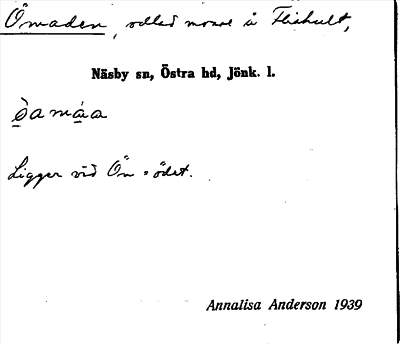 Ömaden, odlad mosse å Fliahult,
Näsby sn, Östra hd, Jönk. l.
òamáa
Ligger vid Ön = ödet.
Annalisa Anderson 1939